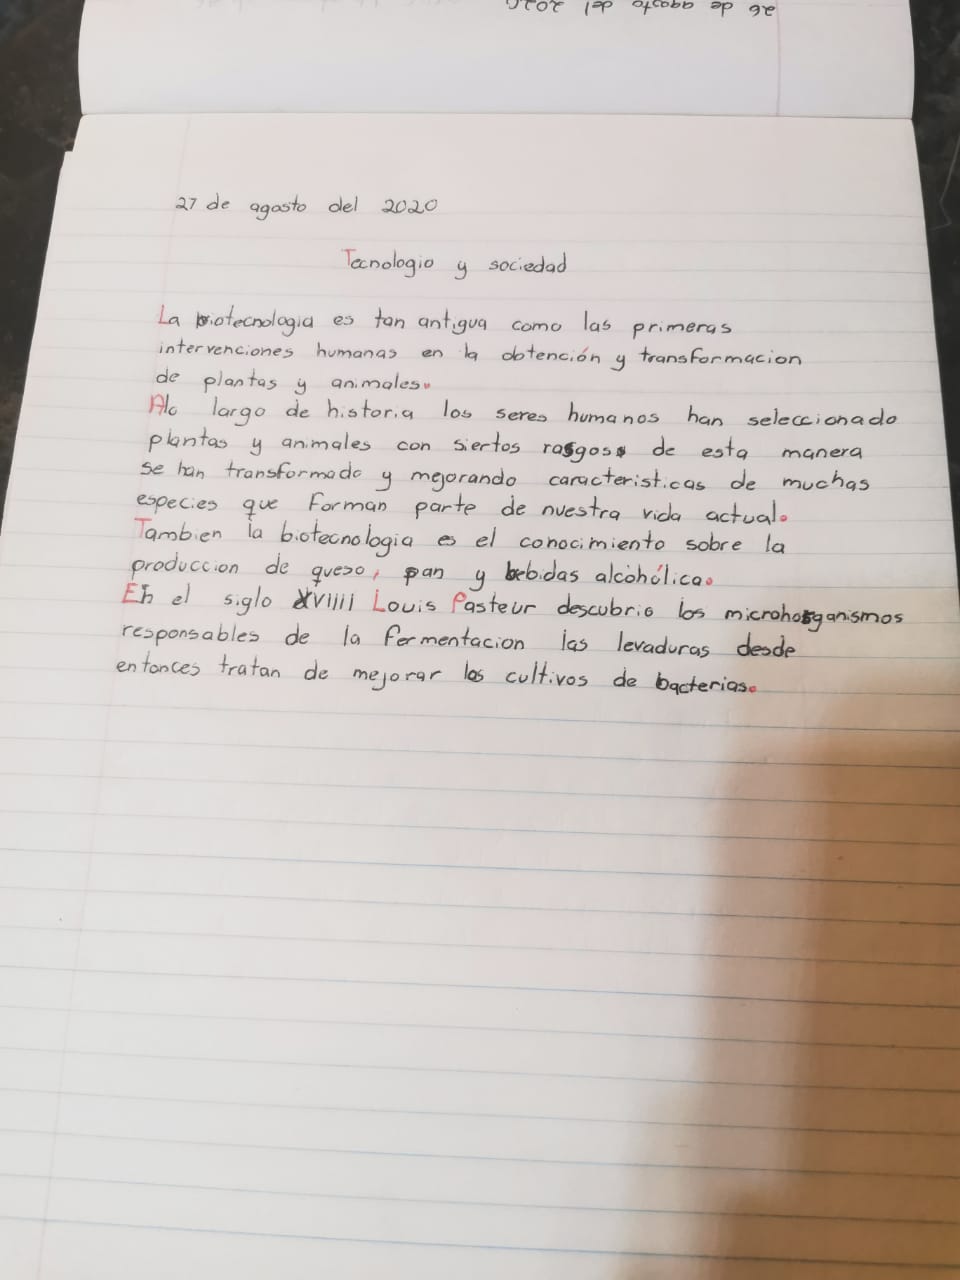 26 de agosto del 2020
27 de agosto del 2020
Tecnologio y sociedad
La biotecnologia es tan antigua como las primeras
intervenciones humanas en la obtención y transformacion
de plantas y animales.
Alo largo de historia los seres humanos han seleccionado
plantas y animales con siertos rasgos de esta manera
se han transformado y mejorando caracteristicas de muchas
especies que forman parte de nuestra vida actual.
Tambien la biotecnologia es el conocimiento sobre la
produccion de queso, pan y bebidas alcohólica.
En el siglo XVIIII Louis Pasteur descubrio los microhorganismos
responsables de la fermentacion las levaduras desde
entonces tratan de mejorar los cultivos de bacterias.